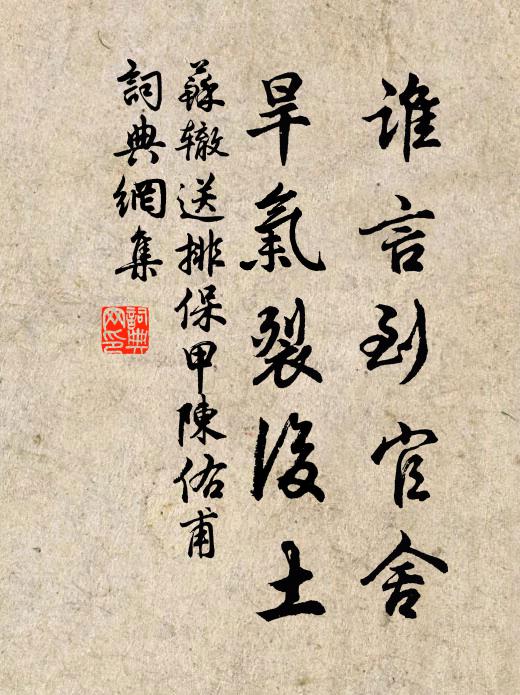 谁言到官舍
旱氣裂後土
蘇辙送排保甲陳佑甫
詞典網集
詞典
网印